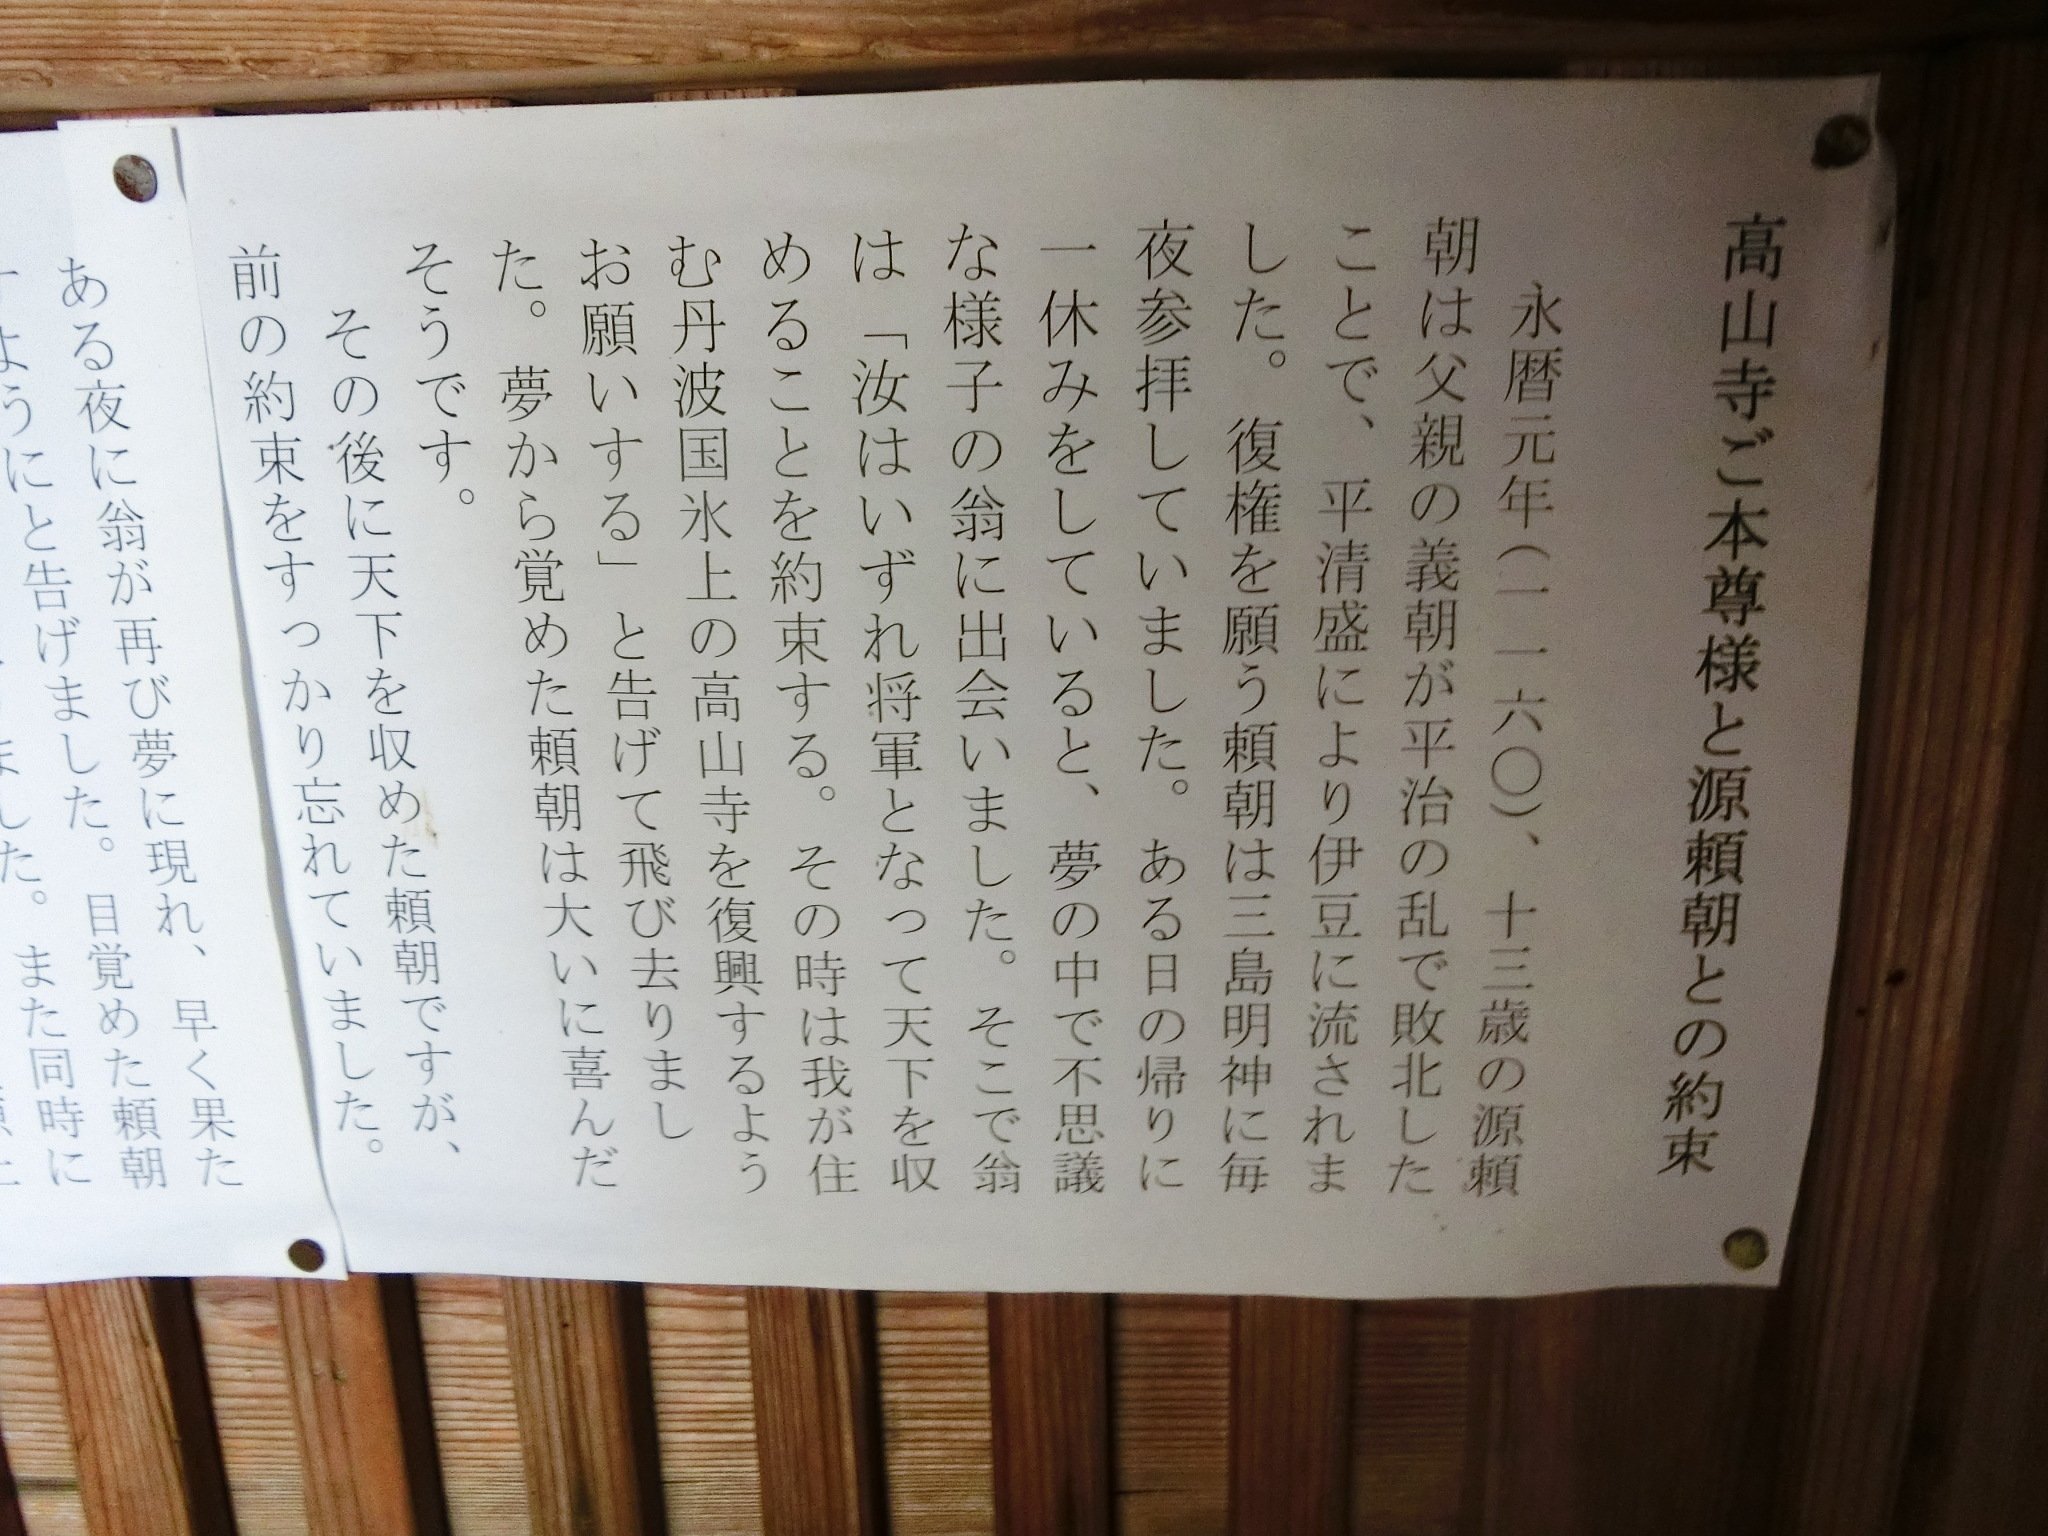 高山寺ご本尊様と源頼朝との約束
永暦元年（一一六〇）、十三歳の源頼
朝は父親の義朝が平治の乱で敗北した
ことで、平清盛により伊豆に流されま
した。復権を願う頼朝は三島明神に毎
夜参拝していました。ある日の帰りに
一休みをしていると、夢の中で不思議
な様子の翁に出会いました。そこで翁
は「汝はいずれ将軍となって天下を収
めることを約束する。その時は我が住
む丹波国氷上の高山寺を復興するよう
お願いする」と告げて飛び去りまし
た。夢から覚めた頼朝は大いに喜んだ
そうです。
その後に天下を収めた頼朝ですが、
前の約束をすっかり忘れていました。
ある夜に翁が再び夢に現れ、早く果た
すようにと告げました。目覚めた頼朝
ました。また同時に